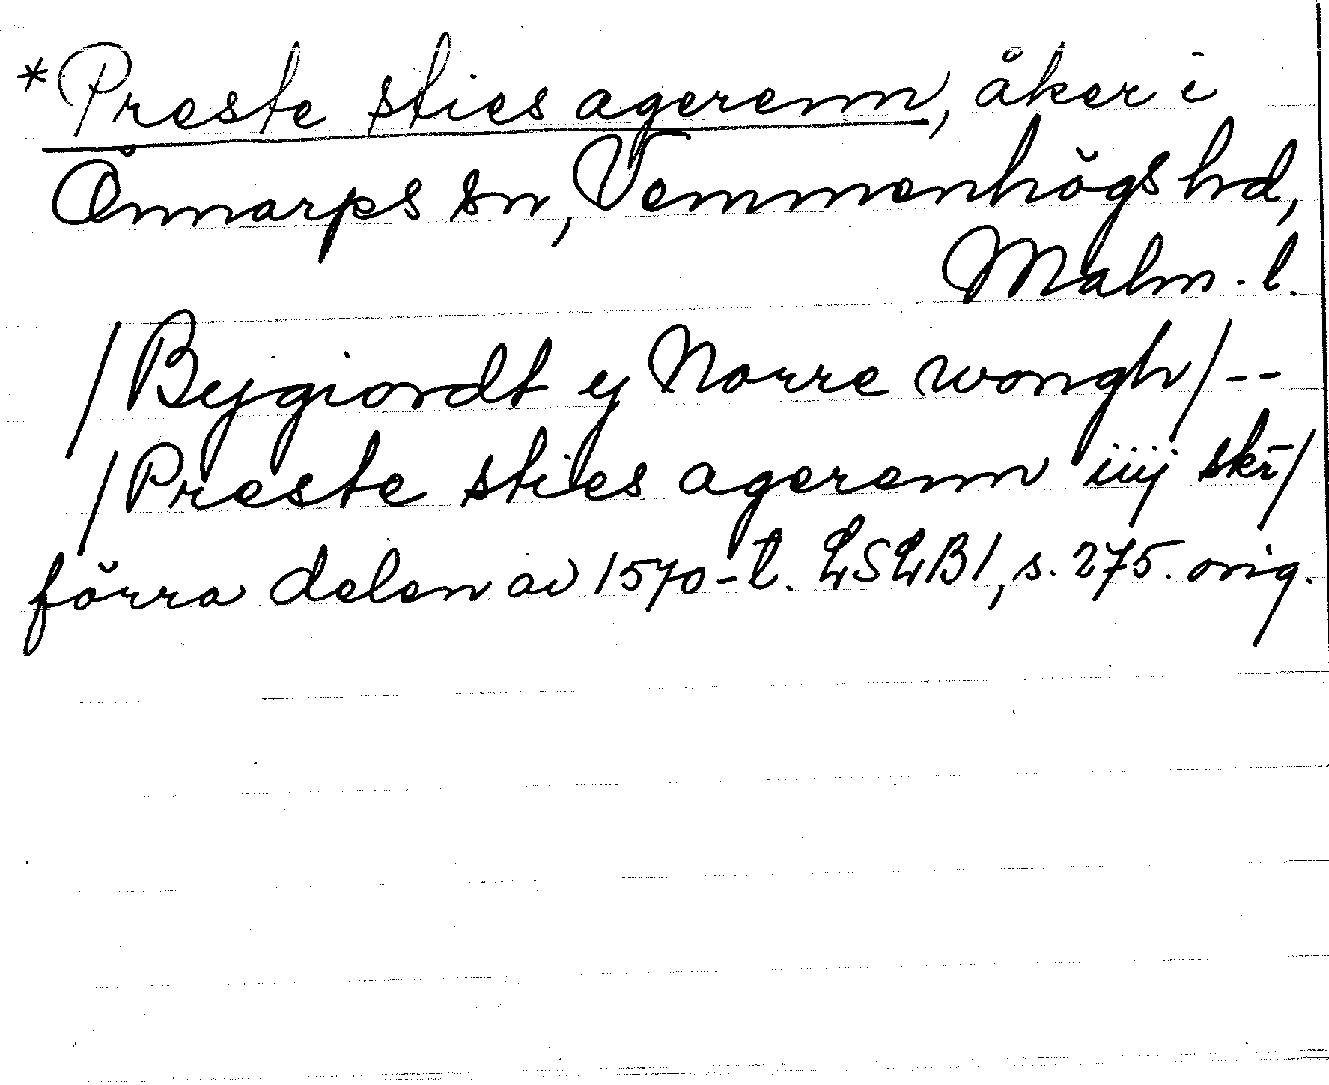 *Preste sties agerenn, åker i
Önnarps sn, Vemmenhögs hd,
Malm. l.
/Bygiordt y Norre wongh/--
/Preste sties agerenn iiij skr/
förra delen av 1570-t. LSLB1, s. 275. orig.